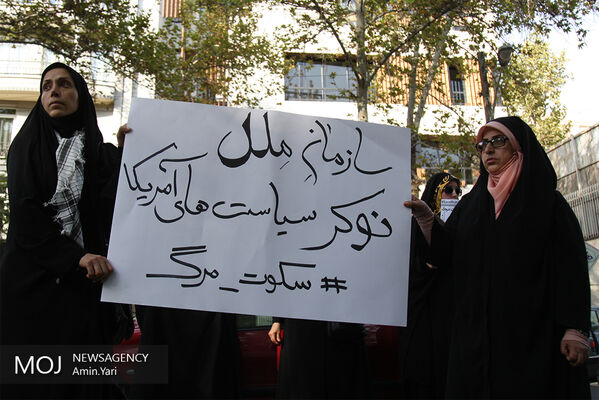 سازمان ملل
نوکر سیاست های آمریکا
#سکوت_مرگ
MOJ NEWSAGENCY
Amin.Yari